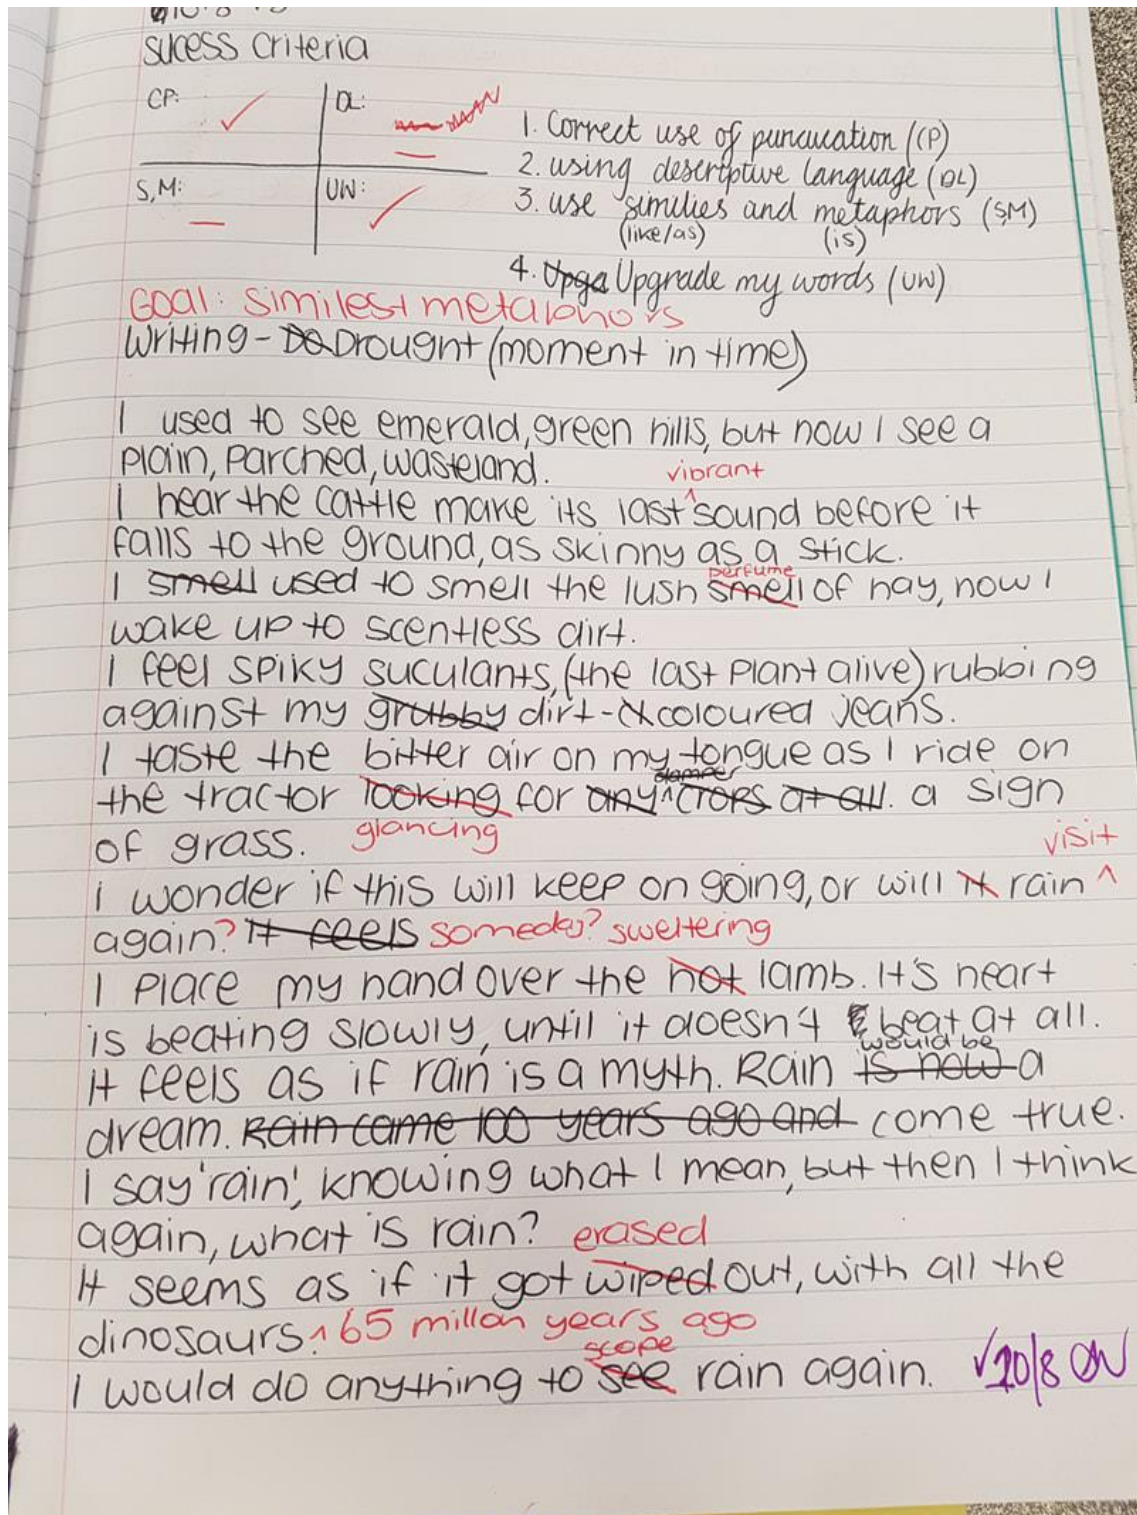 Sucess criteria
CP: DL:
S,M: UW:
1. Correct use of puncucation (CP)
2. using descriptive language (DL)
3. use similies and metaphors (S,M)
(like/as) (is)
4. Upga Upgrade my words (UW)
Goal: similes + metaphors
Writing - Do Drought (moment in time)
I used to see emerald, green hills, but now I see a
plain, parched, wasteland.
vibrant
I hear the cattle make its last ^ sound before it
falls to the ground, as skinny as a stick.
perfume
I smell used to smell the lush smell of hay, now I
wake up to scentless dirt.
I feel spiky suculants, (the last plant alive) rubbing
against my grubby dirt-coloured jeans.
I taste the bitter air on my tongue as I ride on
the tractor looking for any ^ crops at all. a sign
of grass. glancing
visit
I wonder if this will keep on going, or will it rain ^
again? It feels someday? sweltering
I place my hand over the hot lamb. It's heart
is beating slowly, until it doesn't beat at all.
would be
It feels as if rain is a myth. Rain is now a
dream. Rain came 100 years ago and come true.
I say 'rain', knowing what I mean, but then I think
again, what is rain? erased
It seems as if it got wiped out, with all the
dinosaurs. ^ 65 millon years ago
scope
I would do anything to see rain again. 20/8